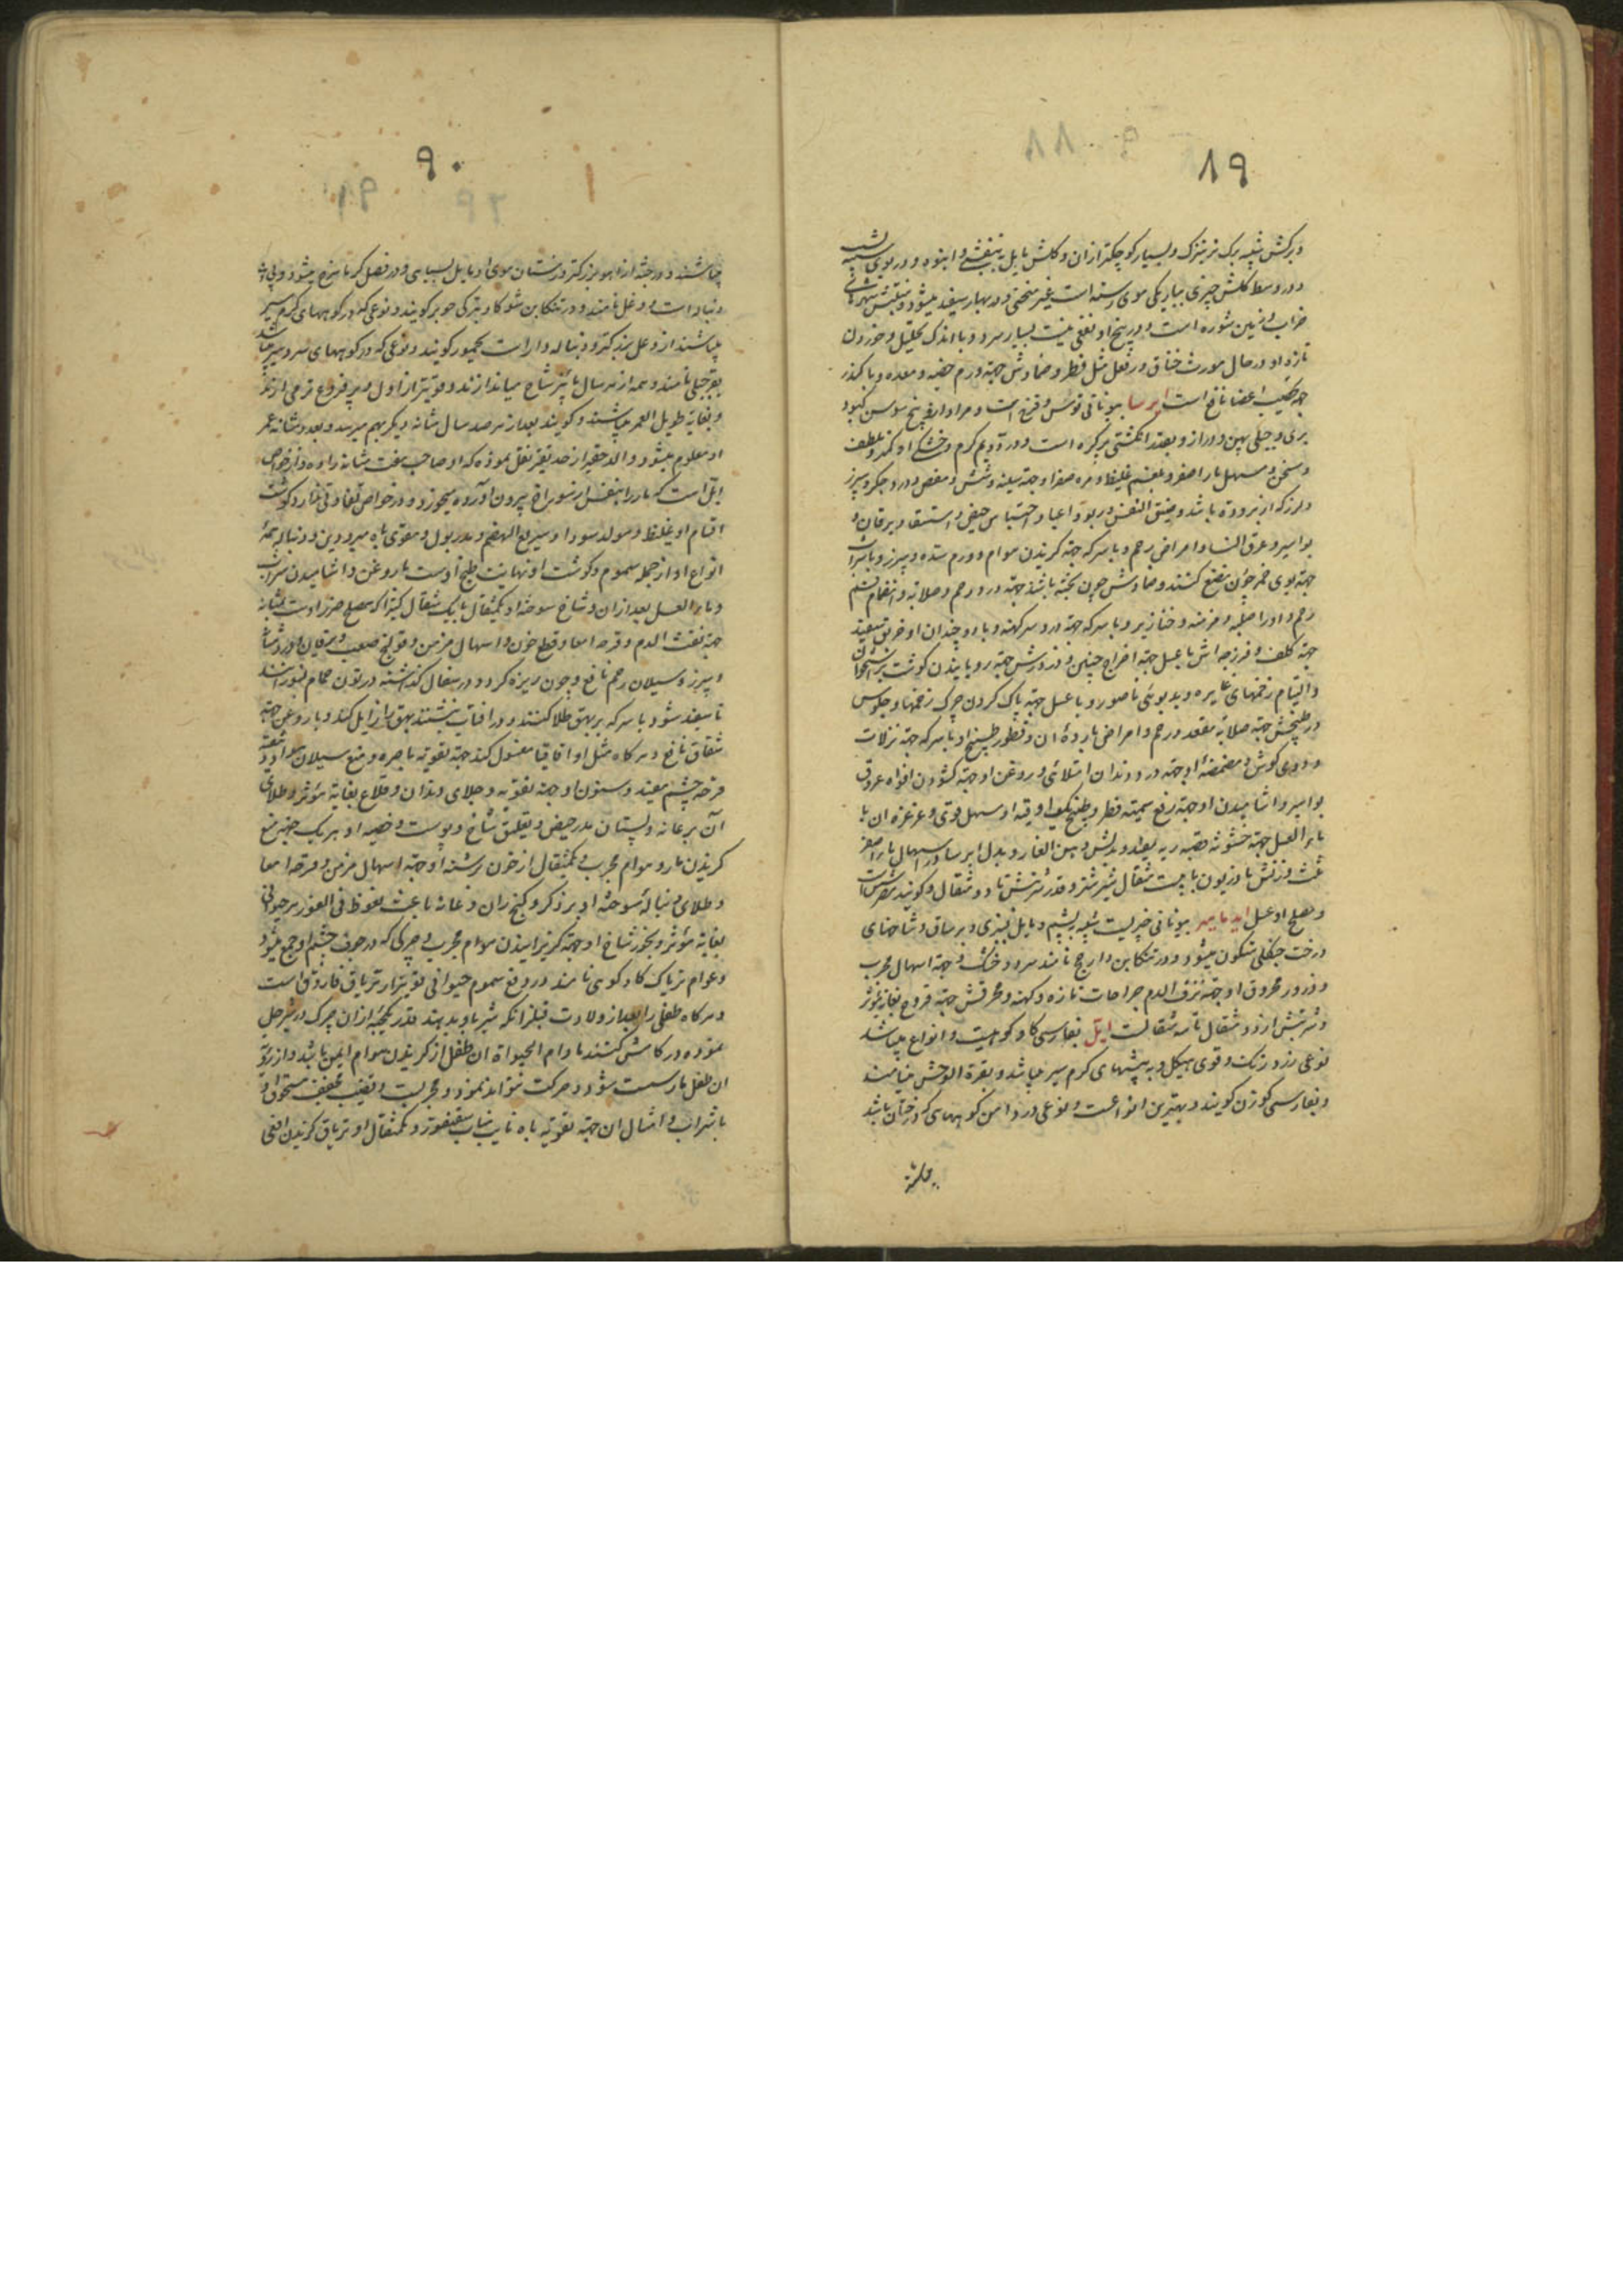 ۸۹
و برگش شبیه ببرگ ترتیزک و بسیار کوچکتر از آن و گلش مایل به بنفشی و انبوه و در بوی شبیه
و در وسط گلش چیزی بباریکی موی رسته است غیر منحنی و در بهار سفید میشود و منبتش شهرهای
خراب و زمین شوره است و در بیخ او نفعی نیست بسیار سرد و با اندک تحلیل و خوردن
تازه او در حال مورث خناق و در فعل مثل فطر و ضمادش جهة ورم خصیه و معده و با کندر
جهة عصب اعضا نافع است ایرسا بیونانی قوس و قزح است و مراد از او بیخ سوسن کبود
بری و جبلی پهن و دراز و بقدر انگشتی پر گره است و در آخر دویم گرم و خشک و ملطف
و مسخن و مسهل ماء اصفر و بلغم غلیظ و مره صفرا و جهة سینه و شش و مغص و درد جگر و سپرز
و لرز که از برودة باشد و ضیق النفس و ربو و اعیا و احتباس حیض و استسقا و یرقان و
بواسیر و عرق النسا و امراض رحم و با سرکه جهة گزیدن هوام و ورم سده و سپرز و با شراب
رحم و اورام صلبه و مزمنه و خنازیر و با سرکه جهة درد سر کهنه و با دو چندان او خربق سفید
جهة کلف و فرزجه اش با عسل جهة اخراج جنین و ذرورش جهة رویانیدن گوشت بر استخوان
و التیام زخمهای غایره و بدبوئی ناصور و با عسل جهة پاک کردن چرک زخمها و جلوس
در طبیخش جهة صلابة مقعد و رحم و امراض بارده آن و قطور طبیخ او با سرکه جهة نزلات
و دوی گوش و مضمضه او جهة درد دندان امتلائی و روغن او جهة گشودن افواه عروق
بواسیر و آشامیدن او جهة رفع سمیة فطر و طبیخ یکوقیه او مسهل قوی و غرغره آن با
ماء العسل جهة خشونة قصبه ریه مفید و بدلش دهن الغار و بدل ایرسا در اسهال ماء اصفر
ثلث وزنش مازریون با بیست مثقال شیر شتر و قدر شربتش تا دو مثقال و گویند مضر شش است
و مصلح او عسل ایدمامید بیونانی چیزیست شبیه بپشم و مایل بزردی و بر ساق و شاخهای
درخت جنگلی متکون میشود و در تنکابن دارج نامند سرد و خشک و جهة اسهال مجرب
و ذرور محروق او جهة نزف الدم جراحات تازه و کهنه و محرقش جهة قروح بغایة مؤثر
و شربتش از دو مثقال تا سه مثقالست ایّل بفارسی گاو کوهیست و انواع میباشد
نوعی زرد رنگ و قوی هیکل و به بیشهای گرم سیر میباشد و بقرة الوحش مینامند
و بفارسی گوزن گویند و بهترین انواعست و نوعی در دامن کوههای که درختان باشد
میباشد
۹۰
میباشند و در جثه از آهو بزرگتر در زمستان موی او مایل بسیاهی و در فصل گرما سرخ میشود و بی
دنباله است و وعل نامند و در تنکابن شوکا و بترکی جویر گویند و نوعی که در کوههای گرم سیر
میباشند از وعل بزرگتر و دنباله دار است یحمور گویند و نوعی که در کوههای سردسیر میباشد
بقر جبلی نامند و همه از هر سال تا پیر شاخ میاندازند و قویتر از اول و پر فروع تر می آورند
و بغایة طویل العمر میباشند و گویند بعد از هر صد سال شانه دیگر بهم میرسد و بعدد شانه عمر
او معلوم میشود و والد حقیر از جد بنفیر نقل نموده که او صاحب هفت شانه را دیده و از خواص
ایل است که مار را بنفس از سوراخ بیرون آورده میخورد و در خواص تفاوتی ندارد و گوشت
اقسام او غلیظ و مولد سودا و سریع الهضم و مدر بول و مقوی باه مبرودین و دنباله همه
انواع او از جمله سموم و گوشت او نهایت طبخ اوست با روغن و آشامیدن سکنجبین
و ماء العسل بعد از آن و شاخ سوخته او یکمثقال با یک مثقال کتیرا که مصلح ضرر اوست بمثانه
جهة نفث الدم و قرحه امعا و قطع خون و اسهال مزمن و قولنج صعب و یرقان و درد مثانه
و سپرز و سیلان رحم نافع و چون ریزه کرده در سفال گذاشته در تون حمام بسوزانند
تا سفید شود با سرکه بر بهق طلا کنند و در آفتاب بنشینند بهق را زایل کند و با روغن جهة
شقاق نافع و هرگاه مثل اقاقیا مغسول کنند جهة تقویة باصره و منع سیلان مواد و
قرحه چشم مفید و سنون او جهة تقویه و جلای دندان و قلاع بغایة مؤثر و طلای
آن بر عانه و پستان مدر حیض و تعلیق شاخ و پوست و خصیه او بهر یک جهة منع
گزیدن مار و هوام مجرب و یکمثقال از خون برشته او جهة اسهال مزمن و قرحه امعا
و طلای دنباله سوخته او بر ذکر و کنج ران و عانه باعث نعوظ فی الفور هر حیوانی
بغایة مؤثر و بخور شاخ او جهة گریزانیدن هوام مجرب و چرکی که در جوف چشم او جمع میشود
و عوام تریاک گاو کوهی نامند در دفع سموم حیوانی قویتر از تریاق فاروق است
و هرگاه طفلی را بعد از ولادت قبل از آنکه شیر باو بدهند قدر یکحبه از آن چرک در شیر حل
نموده در کامش کنند مادام الحیوة آن طفل از گزیدن هوام ایمن باشد و از رؤیة
آن طفل مار سست شود و حرکت نتواند نمود و مجربست و قضیب مجفف مسحوق او
با شراب و امثال آن جهة تقویة باه نایب مناب سقنقور و یکمثقال او تریاق گزیدن افعی